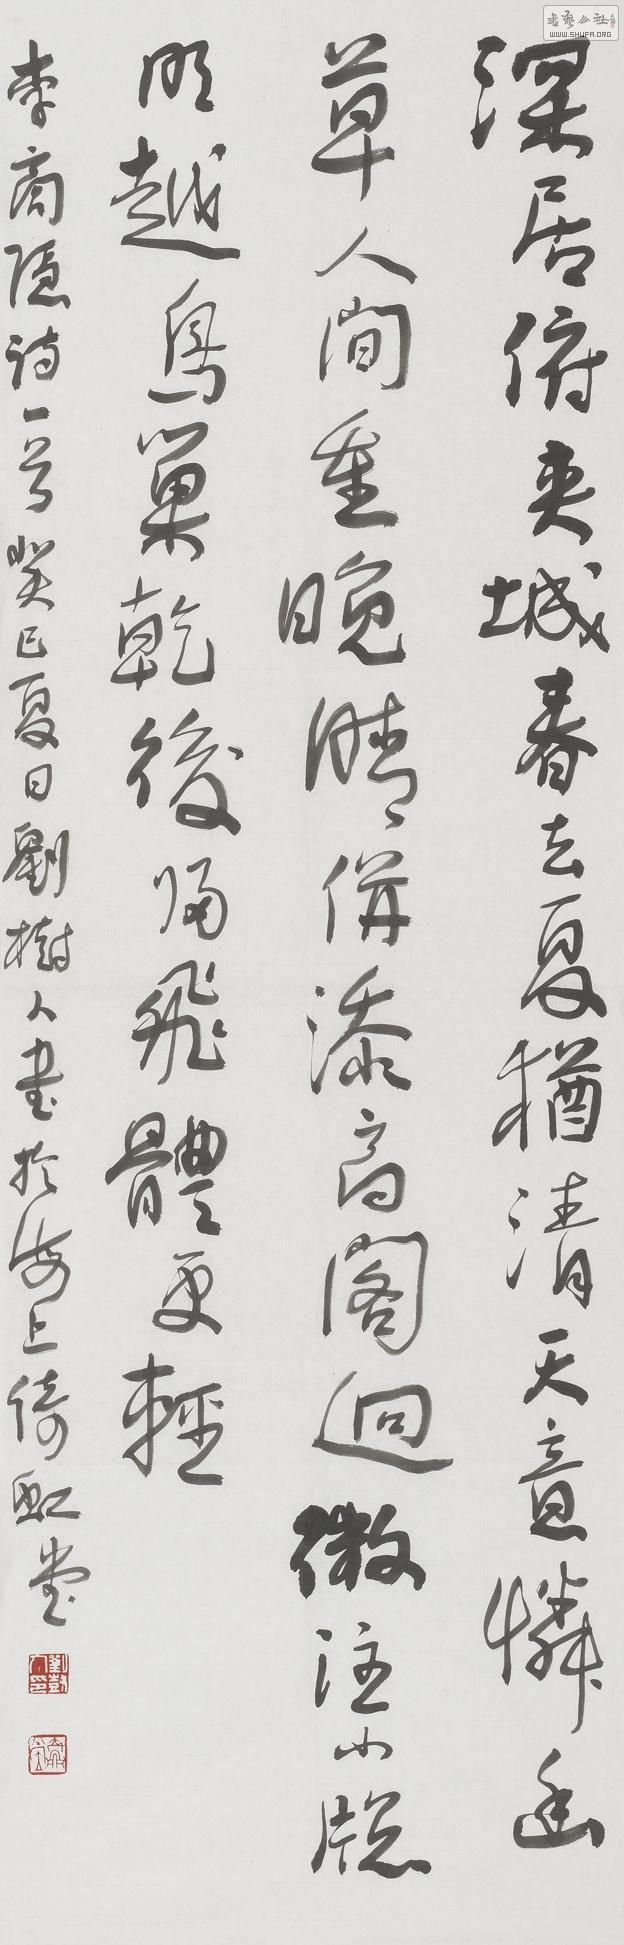 深居俯夹城春去夏猶清天意憐幽
草人间重晚晴併添高閣迥微注小牕
明越鳥巢乾後归飛體更輕
李商隱诗一首癸巳夏日劉樹人書於海上倚虹堂
書藝公社
WWW.SHUFA.ORG